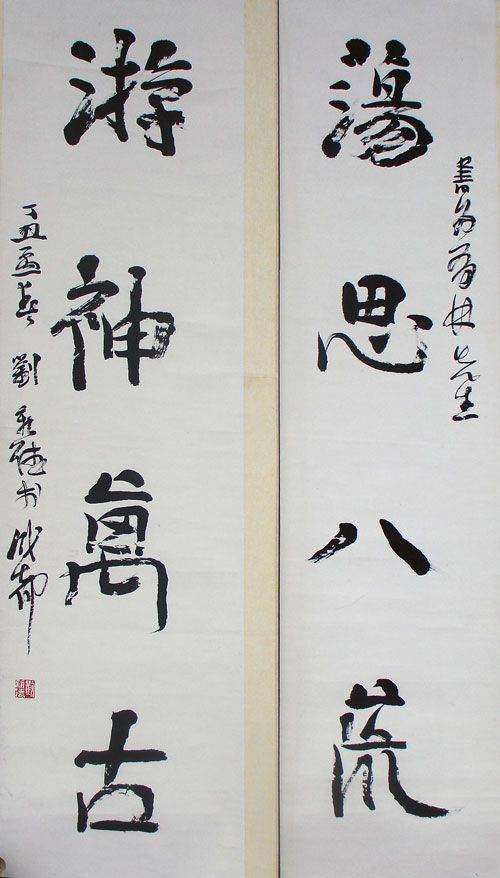 蕩思八荒
書為林先生
游神萬古
丁丑孟春 劉書 成都